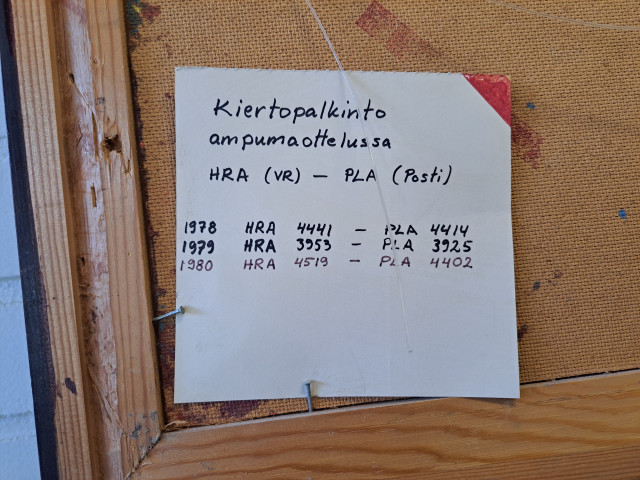 Kiertopalkinto
ampumaottelussa
HRA (VR) – PLA (Posti)
1978 HRA 4441 – PLA 4414
1979 HRA 3953 – PLA 3925
1980 HRA 4519 – PLA 4402